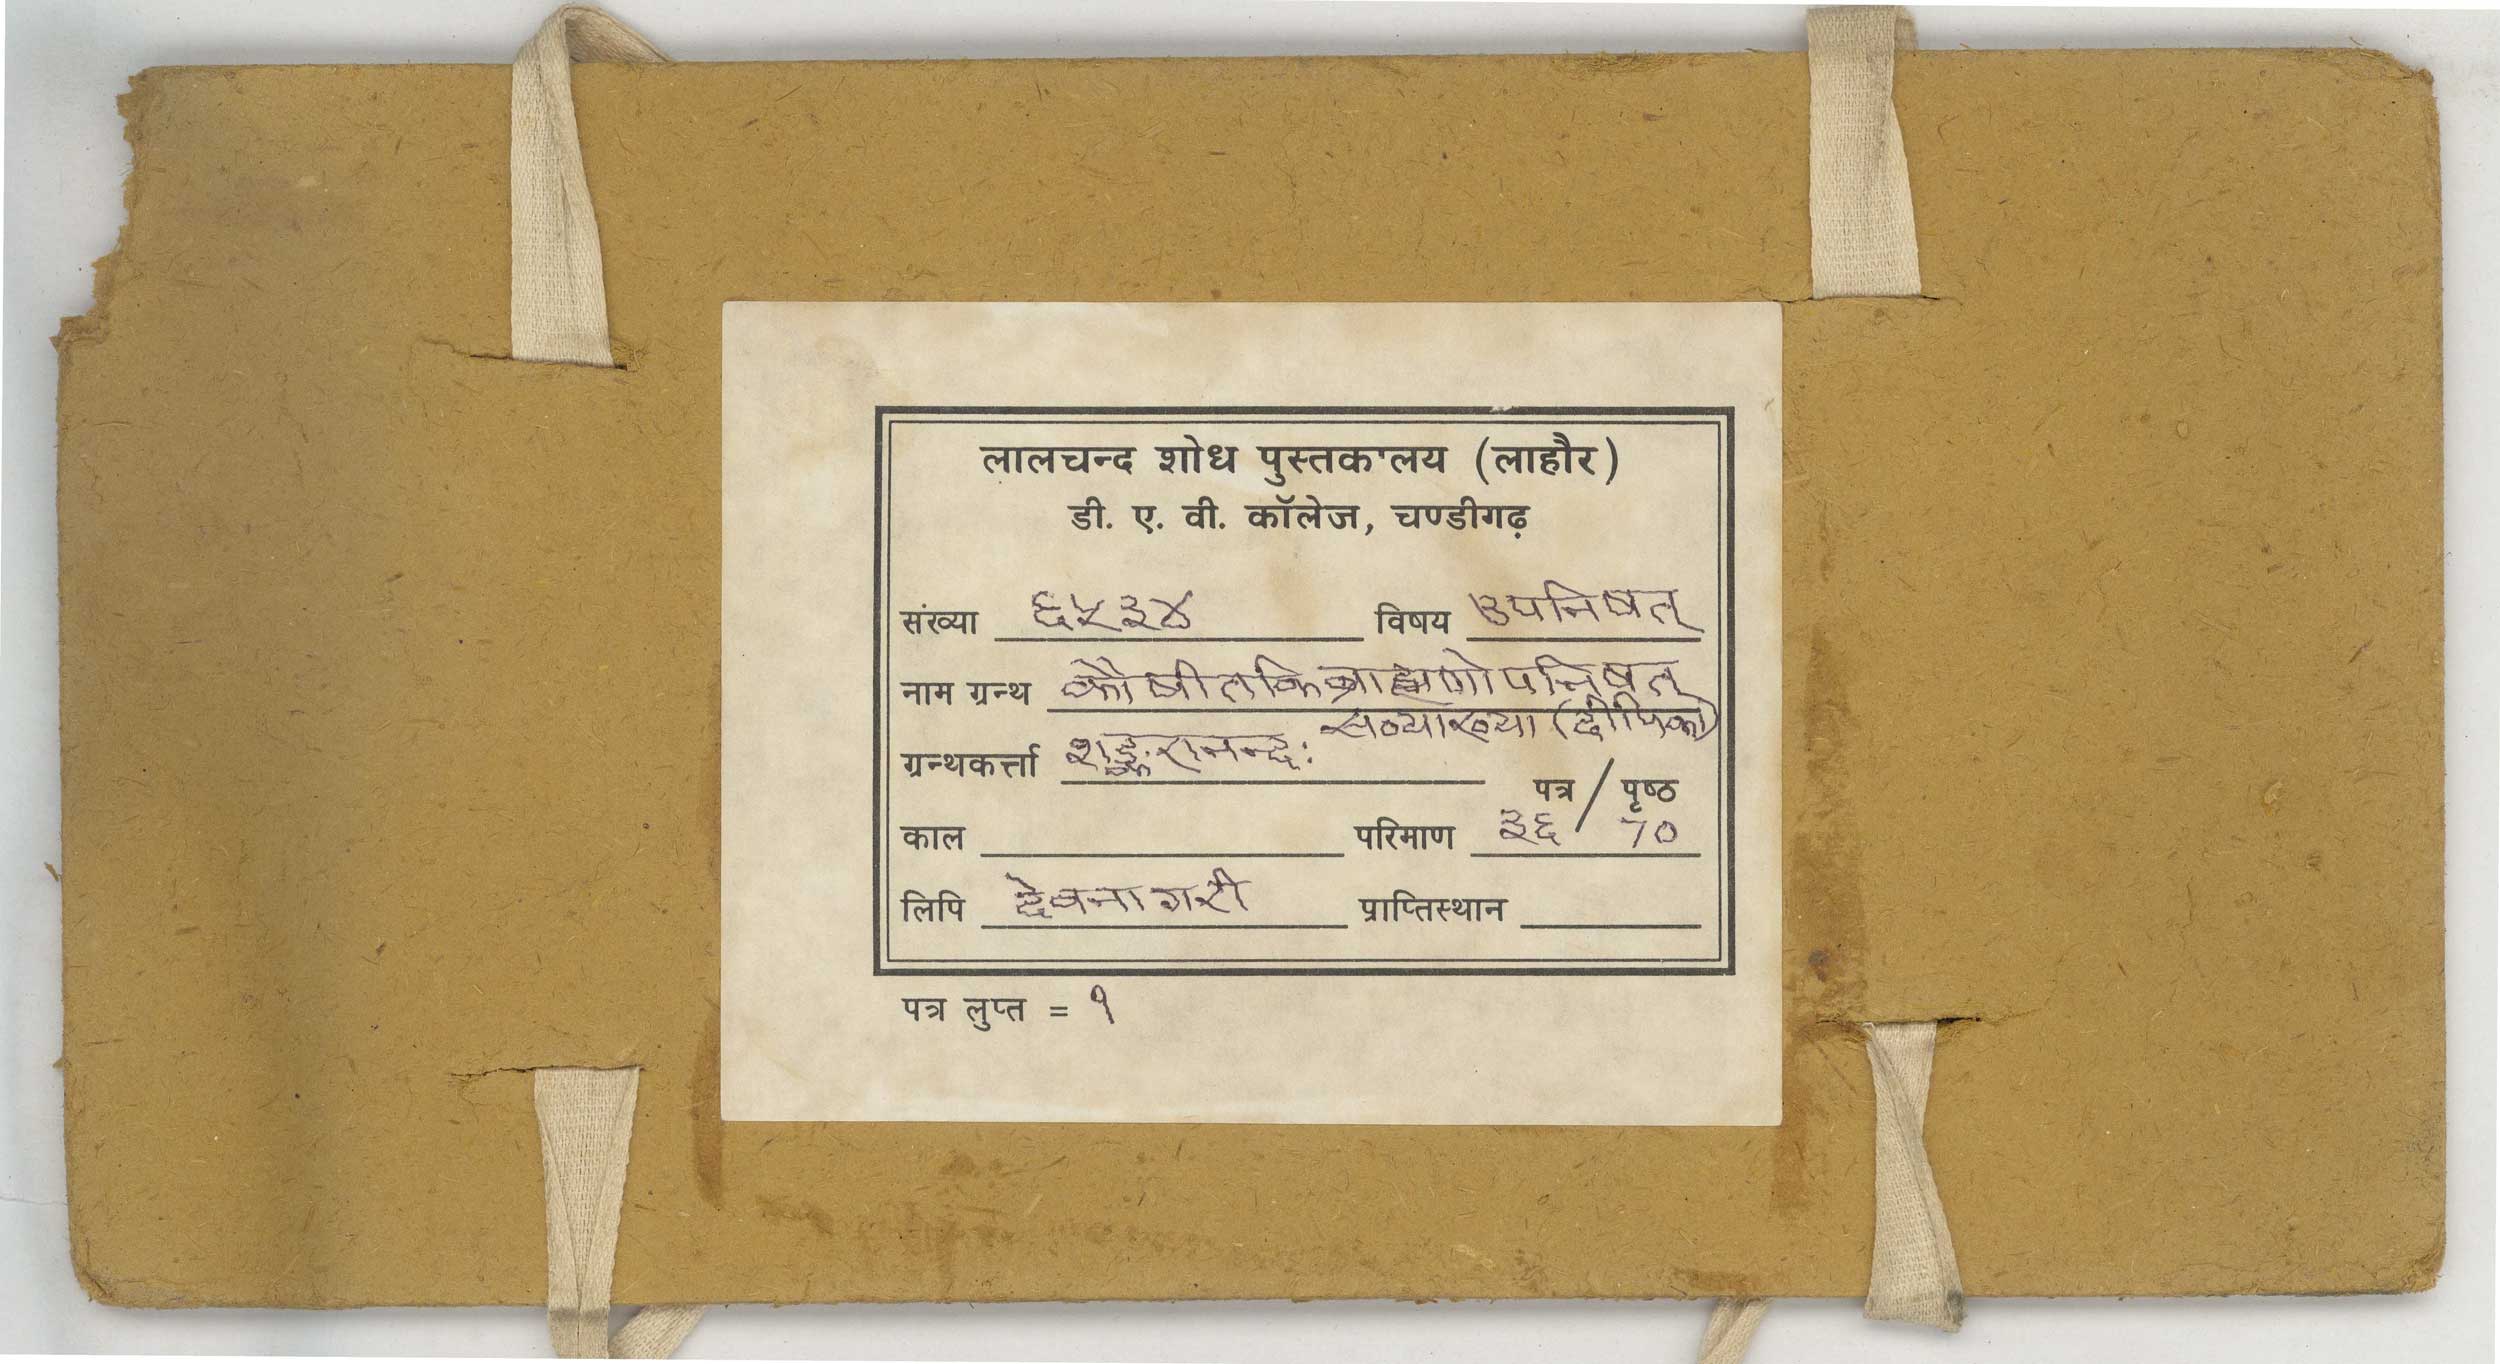 लालचन्द शोध पुस्तक'लय (लाहौर)
डी. ए. वी. कॉलेज, चण्डीगढ़
संख्या ६५३४ विषय उपनिषत्
नाम ग्रन्थ कौषीतकिब्राह्मणोपनिषत्
सव्याख्या (दीपिका)
ग्रन्थकर्त्ता शङ्करानन्दः
पत्र / पृष्ठ
काल परिमाण ३६ / 70
लिपि देवनागरी प्राप्तिस्थान
पत्र लुप्त = १